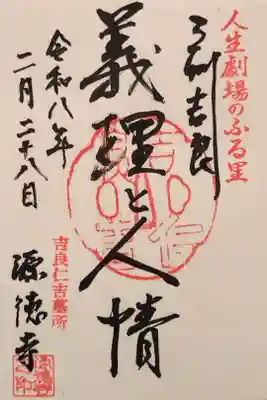 人生劇場のふる里
三州吉良
義理と人情
吉良仁吉墓所
源徳寺
令和八年
二月二十八日